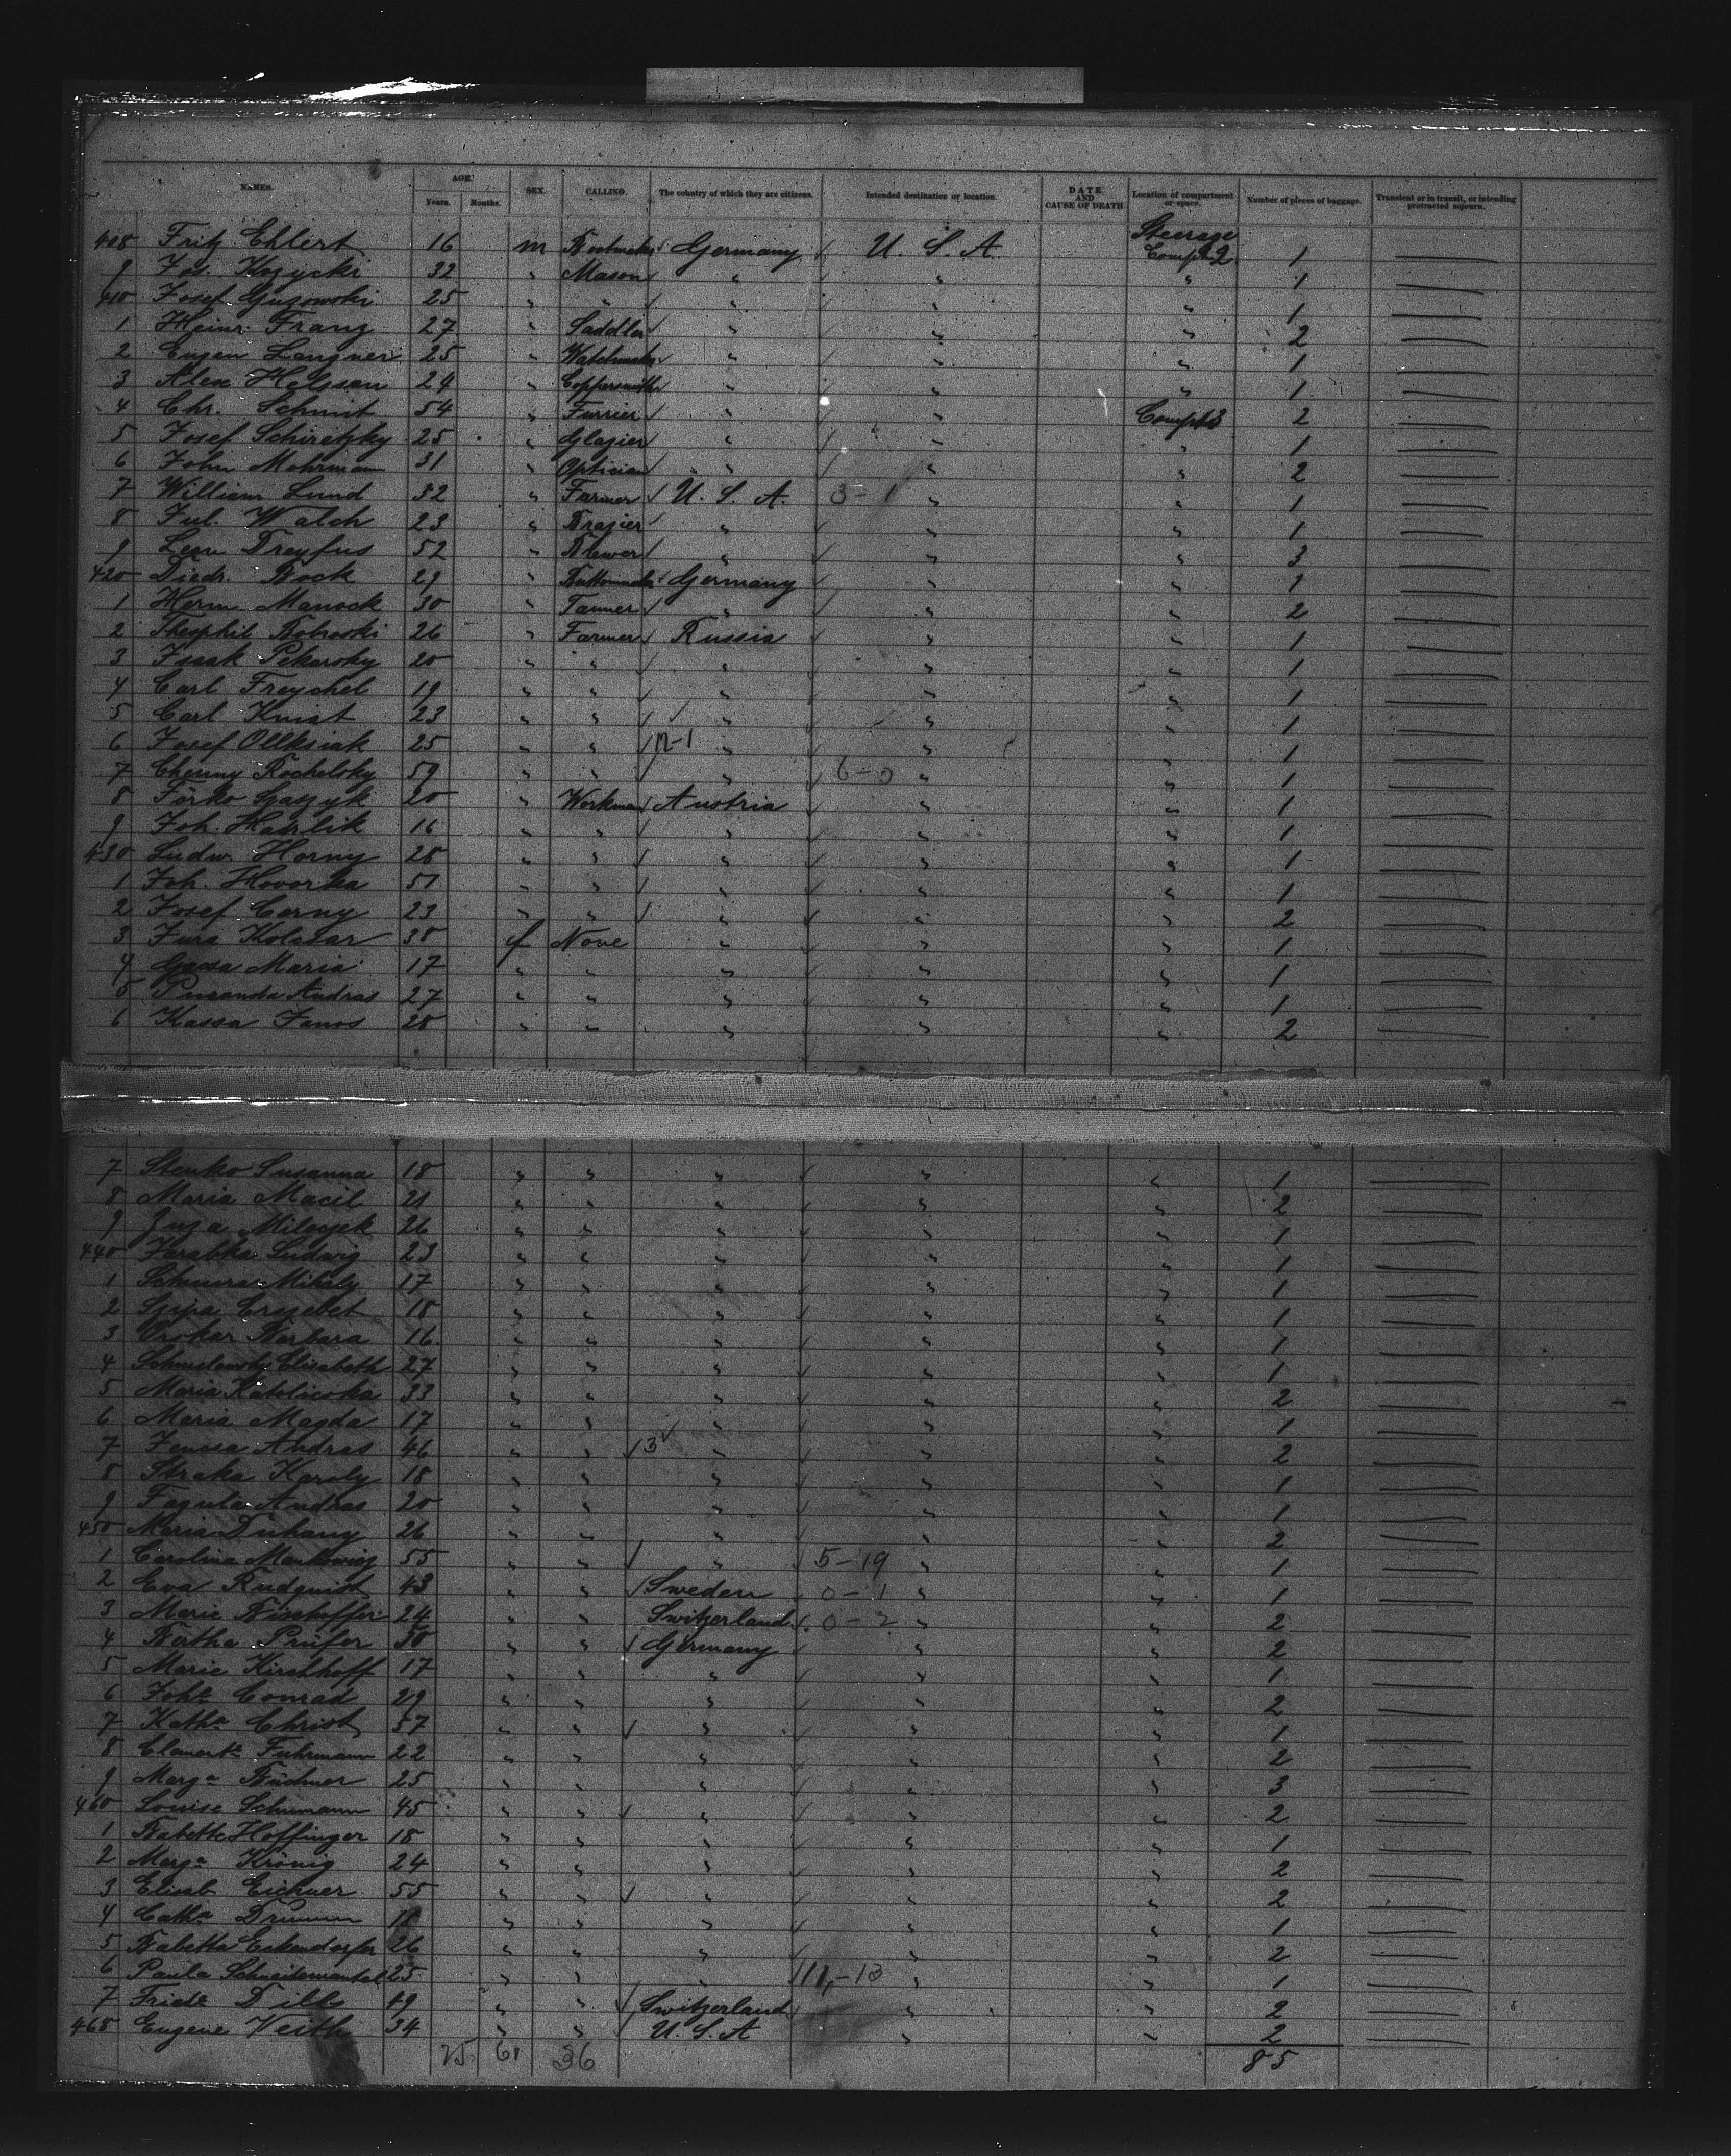 NAMES. AGE. Years. Months. SEX. CALLING. The country of which they are citizens. Intended destination or location. DATE AND CAUSE OF DEATH Location of compartment or space. Number of pieces of baggage. Transient or in transit, or intending protracted sojourn.
408 Fritz Ehlert 16 m Germany U. S. A. Steerage Compt 2 1
9 Jos. Kozycki 32 " Mason " " " 1
410 Josef Guzowski 25 " " " " " 1
1 Heinr. Franz 27 " Saddler " " " 2
2 Eugen Langner 25 " Watchmaker " " " 1
3 Alex 24 " Coppersmith " " " 1
4 Chr. Schmit 54 " Furrier " " Compt 3 2
5 Josef Schiretzky 25 " Glazier " " " 1
6 John Mohrmann 31 " Optician " " " 2
7 William Lund 32 " Farmer U. S. A. 3-1 " " 1
8 Jul. Walch 23 " Brazier " " " 1
9 Leon Dreyfus 52 " Brewer " " " 3
420 Diedr. Bock 29 " Germany " " 1
1 Herm. Manock 30 " Tanner " " " 2
2 Theophil 26 " Farmer Russia " " 1
3 Isaak Pekarsky 20 " " " " " 1
4 Carl Freychel 19 " " " " " 1
5 Carl Kniat 23 " " " " " 1
6 Josef Olleksiak 25 " " " " " 1
7 Rochelsky 59 " " " 6-0 " " 1
8 20 " Workman Austria " " 1
9 Joh. Havrlik 16 " " " " " 1
430 Ludw. Horny 28 " " " " " 1
1 Joh. Hovorka 51 " " " " " 1
2 Josef Cerny 23 " " " " " 2
3 Jura Kolesar 38 f None " " " 1
4 Maria 17 " " " " " 1
5 Andras 27 " " " " " 1
6 Kassa Janos 28 " " " " " 2
7 Stenko Susanna 18 " " " " " 1
8 Maria Macil 21 " " " " " 2
9 Zuza Milaczek 26 " " " " " 1
440 Ludwig 23 " " " " " 1
1 Mihaly 17 " " " " " 1
2 Erzebet 18 " " " " " 1
3 Barbara 16 " " " " " 1
4 Elisabeth 27 " " " " " 1
5 Maria Katolicska 33 " " " " " 2
6 Maria Magda 17 " " " " " 1
7 Andras 46 " " 3 " " " 2
8 Straka Karoly 18 " " " " " 1
9 Fagula Andras 20 " " " " " 1
450 Maria Duhany 26 " " " " " 2
1 Carolina Mankowicz 55 " " " 5-19 " " 1
2 Eva Rudquist 43 " " Sweden 0-1 " " 1
3 Marie Bischoffer 24 " " Switzerland 0-2 " " 2
4 Bertha Prüfer 30 " " Germany " " 2
5 Marie Kirchhoff 17 " " " " " 1
6 Joha Conrad 29 " " " " " 2
7 Katha Christ 57 " " " " " 1
8 Fuhrmann 22 " " " " " 2
9 Marga Büchner 25 " " " " " 3
460 Louise Schumann 45 " " " " " 2
1 Babette Hoffinger 18 " " " " " 1
2 Marga Krönig 24 " " " " " 2
3 Elisab. Eichner 55 " " " " " 2
4 Catha 18 " " " " " 1
5 Babetta Eckendorfer 26 " " " " " 2
6 Paula Schneidemantel 25 " " " " " 1
7 Frieda Dills 49 " " Switzerland " " 2
468 Eugene Veith 34 " " U. S. A " " 2
25 61 36 85